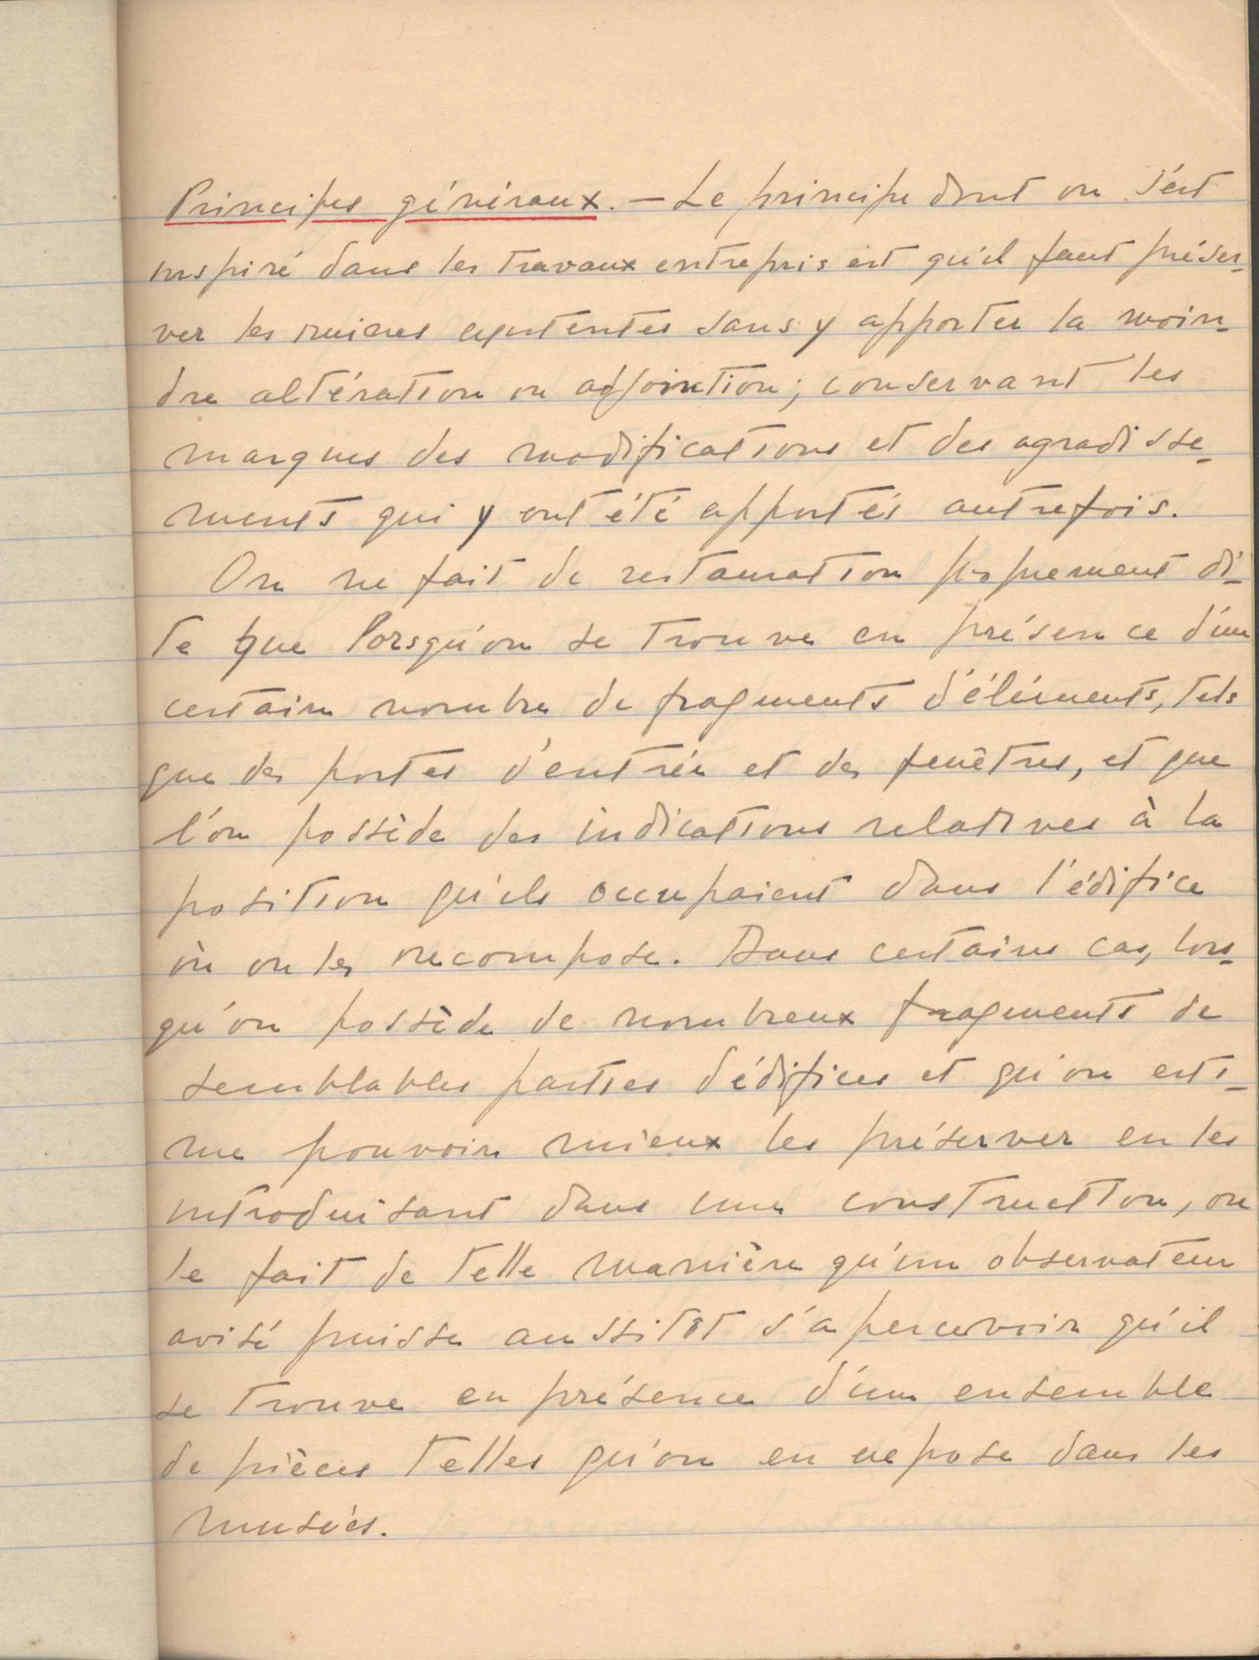 Principes généraux. — Le principe dont on s'est
inspiré dans les travaux entrepris est qu'il faut préser-
ver les ruines existentes sans y apporter la moin-
dre altération ou adjontion; conservant les
marques des modifications et des agradisse-
ments qui y ont été apportés autrefois.
On ne fait de restauration proprement di-
te que lorsqu'on se trouve en présence d'un
certain nombre de fragments d'éléments, tels
que des portes d'entrée et des fenêtres, et que
l'on possède des indications relatives à la
position qu'ils occupaient dans l'édifice
où on les recompose. Dans certains cas, lors-
qu'on possède de nombreux fragments de
semblables parties d'édifices et qu'on esti-
me pouvoir mieux les préserver en les
introduisant dans une construction, on
le fait de telle manière qu'un observateur
avisé puisse aussitôt s'apercevoir qu'il
se trouve en présence d'un ensemble
de pièces telles qu'on en expose dans les
musées.